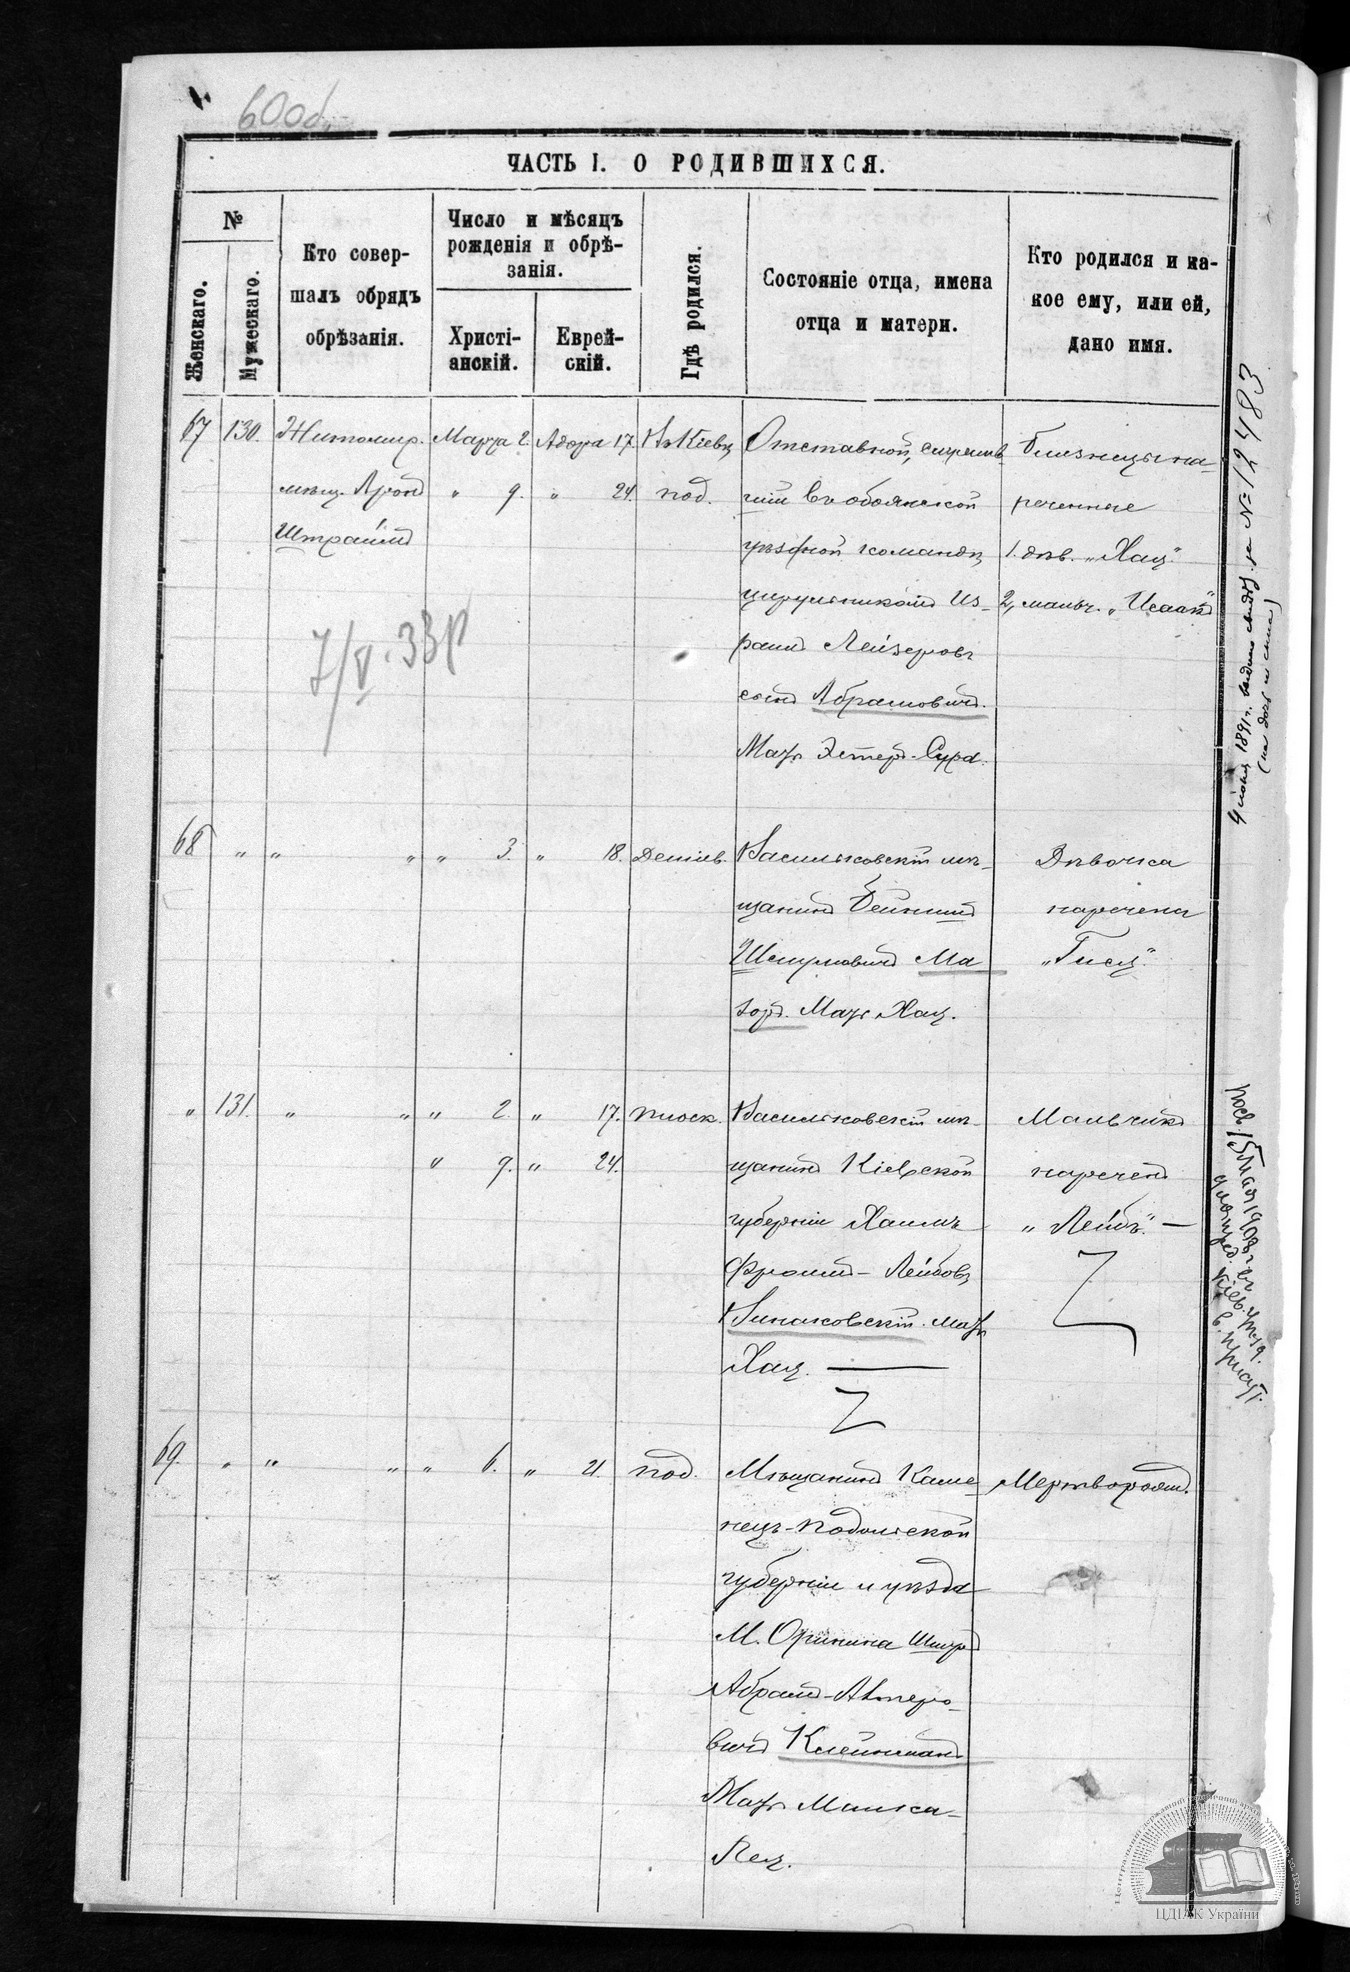 60об.
ЧАСТЬ I. О РОДИВШИХСЯ.
№
Женскаго.
Мужескаго.
Кто совер-
шалъ обрядъ
обрѣзанія.
Число и мѣсяцъ
рожденія и обрѣ-
занія.
Христі-
анскій.
Еврей-
скій.
Гдѣ родился.
Состояніе отца, имена
отца и матери.
Кто родился и ка-
кое ему, или ей,
дано имя.
67 130. Житомир. Марта 2. Адора 17. Въ Кіевѣ
мѣщ. Аронъ " 9. " 24. под.
Штраймъ
Отставной, служив-
шій въ обоянской
уѣздной командѣ
цирульникомъ Из-
раиль Лейзеровъ
сынъ Абрамовичъ.
Мать Эстеръ-Сура.
Близнецы на-
реченные
1. дѣв. „Хая"
2, мальч. „Исаакъ"
7/V. 33р
68 " " " " 3. " 18. Деміев.
Васильковскій мѣ-
щанинъ Бейнишъ
Шмулевичъ Ма-
зоръ. Мать Хая.
Дѣвочка
наречена
„Гися"
" 131. " " " 2. " 17. плоск.
" 9. " 24.
Васильковскій мѣ-
щанинъ Кіевской
губерніи Хаимъ
Фроимъ-Лейбовъ
Синаковскій. мать
Хая.
Мальчикъ
нареченъ
„Лейбъ". —
69. " " " " 6. " 21. под.
Мѣщанинъ Каме-
нецъ-Подольской
губерніи и уѣзда
М. Оринина Шмуль
Абрамъ-Алтеро-
вичъ Клейнманъ
Мать Малка-
Лея.
Мертворожд.
4 іюня 1891 г. выдано свид. за № 12483
(на дочь и сына)
ЦДІАК України